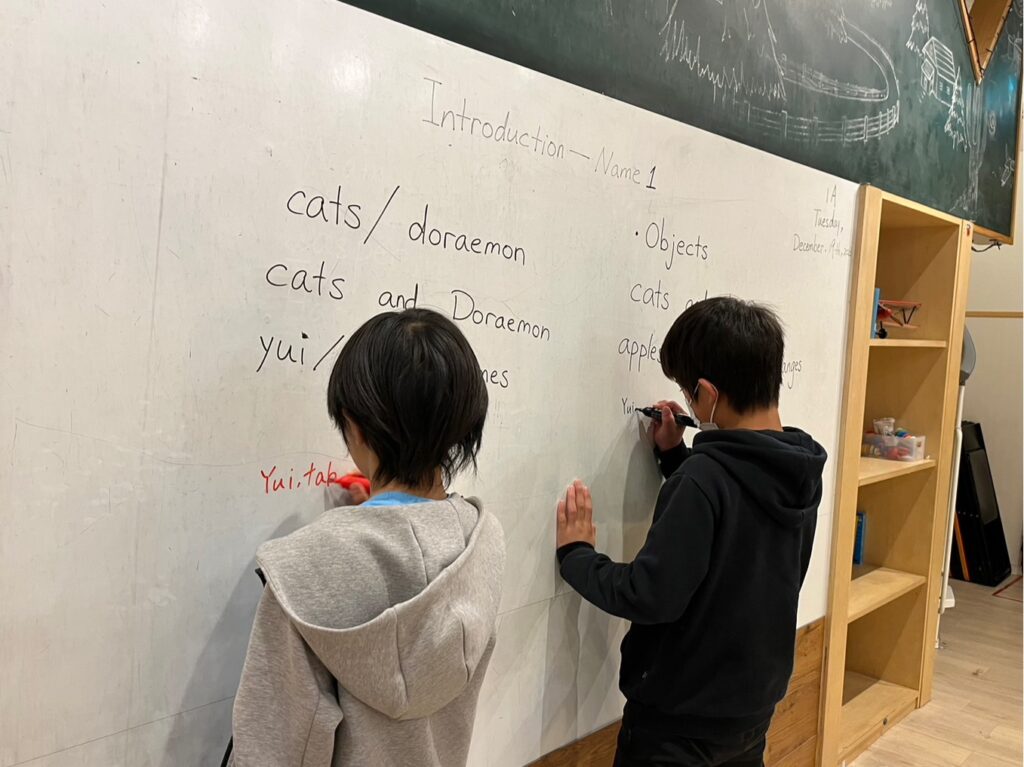 Introduction — Name 1
1A
Tuesday,
December. 19th,
cats / doraemon
cats and Doraemon
yui /
Yui. tak
• Objects
cats
apples
Yui